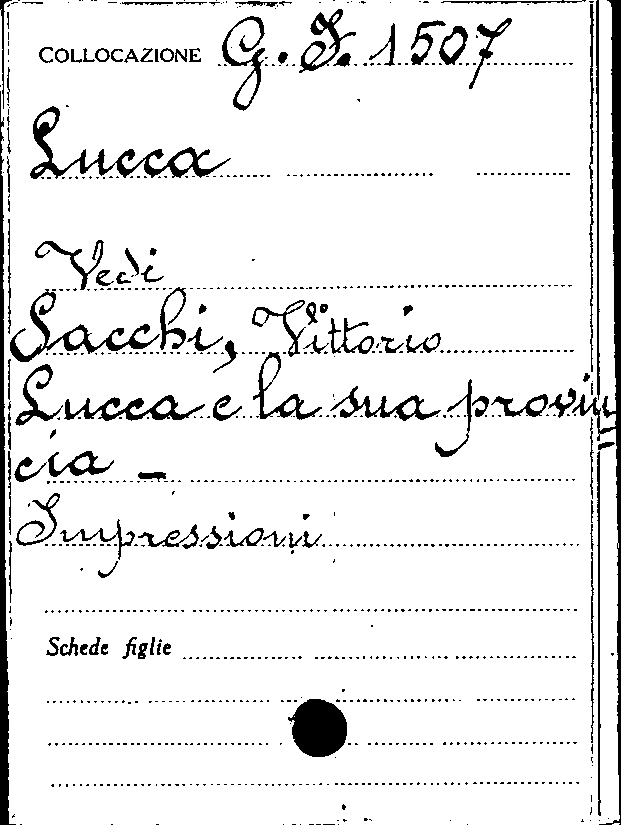 COLLOCAZIONE G. I. 1507
Lucca
Vedi
Sacchi, Vittorio
Lucca e la sua provin=
cia -
Impressioni
Schede figlie